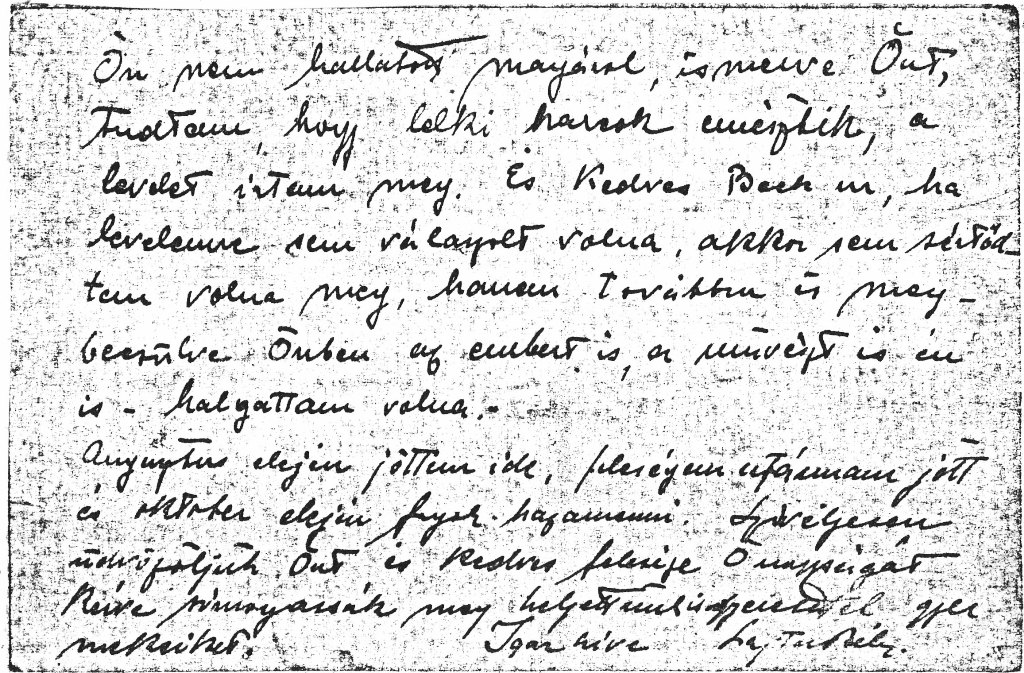 Ön nem hallatott magáról, ismerve Önt,
tudtam, hogy lelki harcok emésztik, a
levelet irtam meg. És Kedves Beck ur, ha
levelemre sem válaszolt volna, akkor sem sértőd-
tem volna meg, hanem továbbra is meg-
becsülve Önben az embert is, a művészt is én
is - halgattam volna.-
Augusztus elején jöttem ide, feleségem utánnam jött
és október elején fogok hazamenni. Szivélyesen
üdvözöljük Önt és kedves felesége Őnagyságát
Kérve simogassák meg helyettünk is gyer
mekeiket. Igaz hive